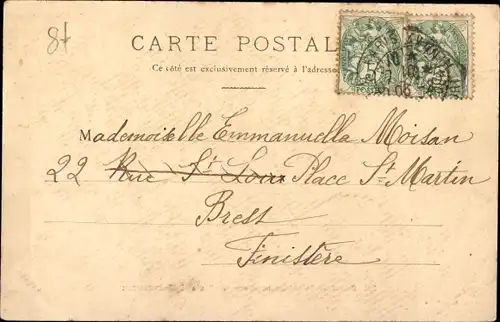 8f
CARTE POSTALE
Ce côté est exclusivement réservé à l'adresse
Mademoiselle Emmanuella Moisan
22 Rue St Louis Place St Martin
Brest
Finistère